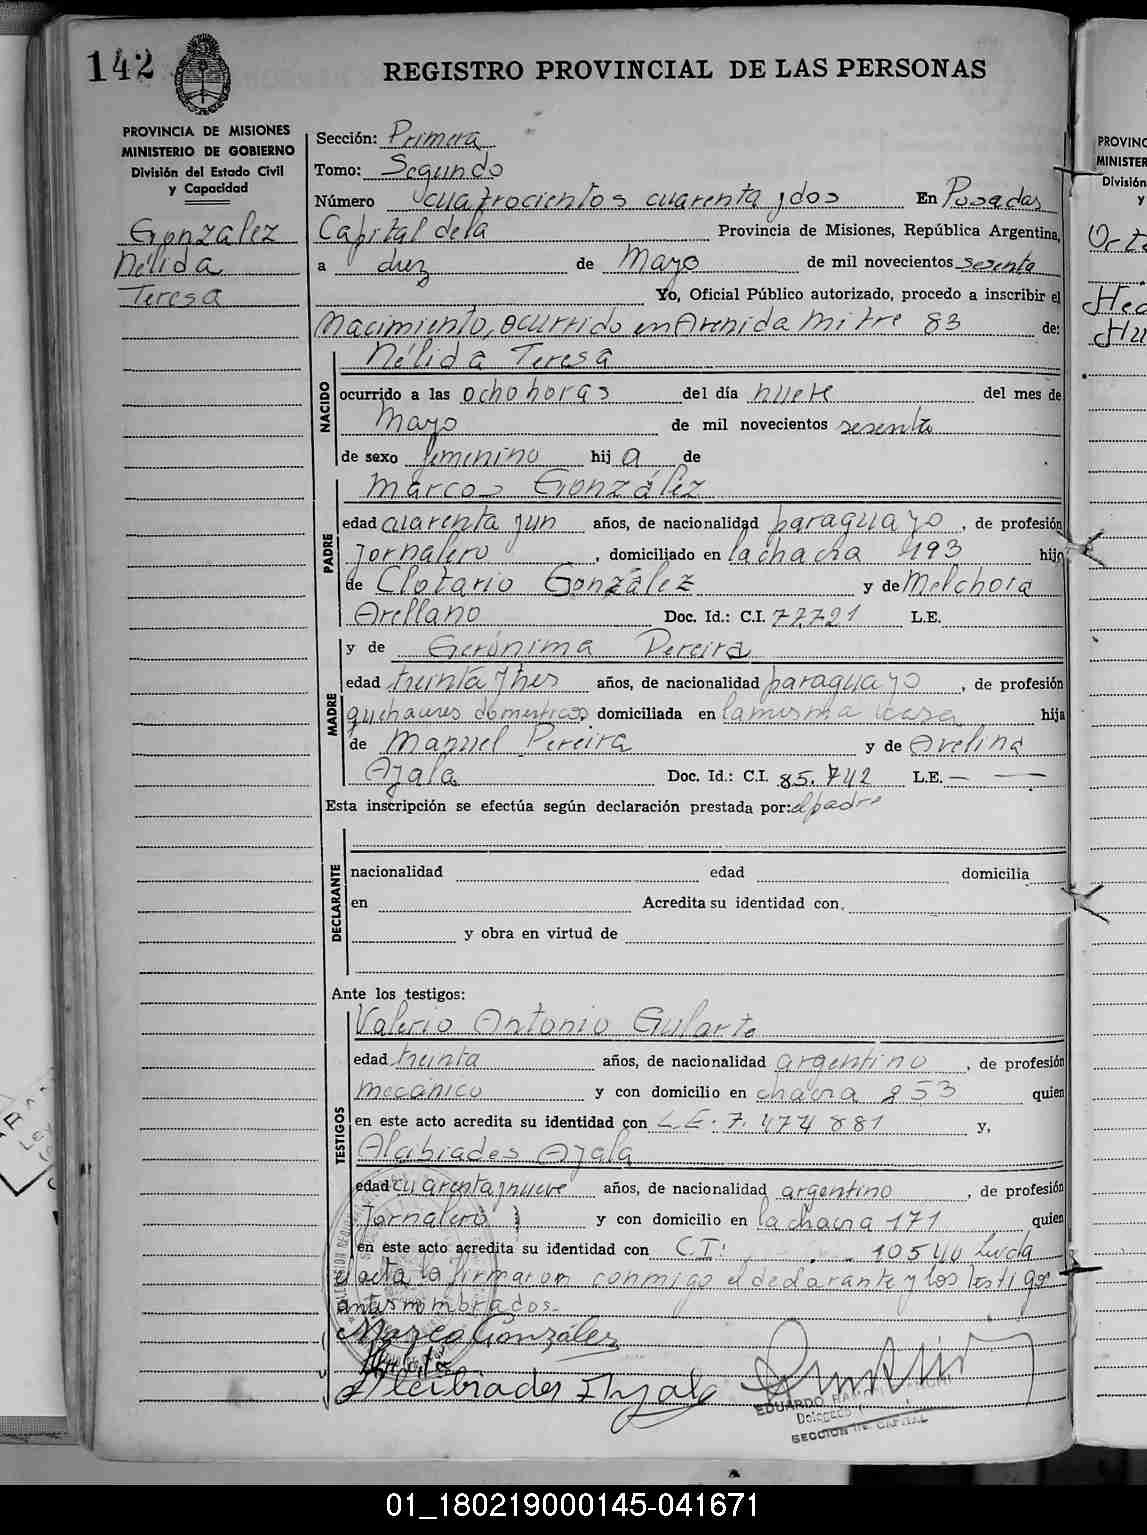 142
REGISTRO PROVINCIAL DE LAS PERSONAS
PROVINCIA DE MISIONES
MINISTERIO DE GOBIERNO
División del Estado Civil
y Capacidad
Gonzalez
Nélida
Teresa
Sección: Primera
Tomo: Segundo
Número cuatrocientos cuarenta y dos En Posadas
Capital de la Provincia de Misiones, República Argentina,
a diez de Mayo de mil novecientos sesenta
Yo, Oficial Público autorizado, procedo a inscribir el
Nacimiento, ocurrido en Avenida Mitre 83 de:
NACIDO
Nélida Teresa
ocurrido a las ocho horas del día nueve del mes de
Mayo de mil novecientos sesenta
de sexo femenino hij a de
PADRE
Marcos González
edad cuarenta y un años, de nacionalidad paraguayo, de profesión
Jornalero, domiciliado en la chacra 193 hijo
de Clotario González y de Melchora
Arellano Doc. Id.: C.I. 72721 L.E.
MADRE
y de Gerónima Pereira
edad treinta y tres años, de nacionalidad paraguayo, de profesión
quehaceres domesticos domiciliada en la misma casa hija
de Manuel Pereira y de Avelina
Ayala Doc. Id.: C.I. 85.742 L.E. — —
Esta inscripción se efectúa según declaración prestada por: el padre
DECLARANTE
nacionalidad edad domicilia
en Acredita su identidad con
y obra en virtud de
Ante los testigos:
TESTIGOS
Valerio Antonio Gularte
edad treinta años, de nacionalidad argentino, de profesión
mecánico y con domicilio en chacra 253 quien
en este acto acredita su identidad con L.E. 7.474 881 y,
Alcibiades Ayala
edad cuarenta y nueve años, de nacionalidad argentino, de profesión
Jornalero y con domicilio en la chacra 171 quien
en este acto acredita su identidad con C.I: 10540 Leida
el acta la firmaron conmigo el declarante y los testigos
antes nombrados.-
Marco González
Alcibiades Ayala
EDUARDO
Delegado
SECCION DE CAPITAL
PROVINC
MINISTER
División
y
01_180219000145-041671